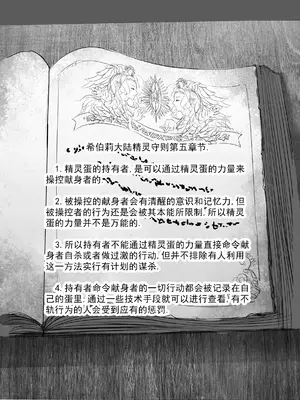 希伯莉大陆精灵守则第五章节.
1. 精灵蛋的持有者, 是可以通过精灵蛋的力量来
操控献身者的
2. 被操控的献身者会有清醒的意识和记忆力, 但
被操控者的行为还是会被其本能所限制, 所以精灵
蛋的力量并不是万能的.
3. 所以持有者不能通过精灵蛋的力量直接命令献
身者自杀或者做过激的动力, 但并不排除有人利用
这一方法实行有计划的谋杀.
4. 持有者命令献身者的一切行动都会被记录在自
己的蛋里. 通过一些技术手段就可以进行查看, 有不
轨行为的人会受到应有的惩罚.